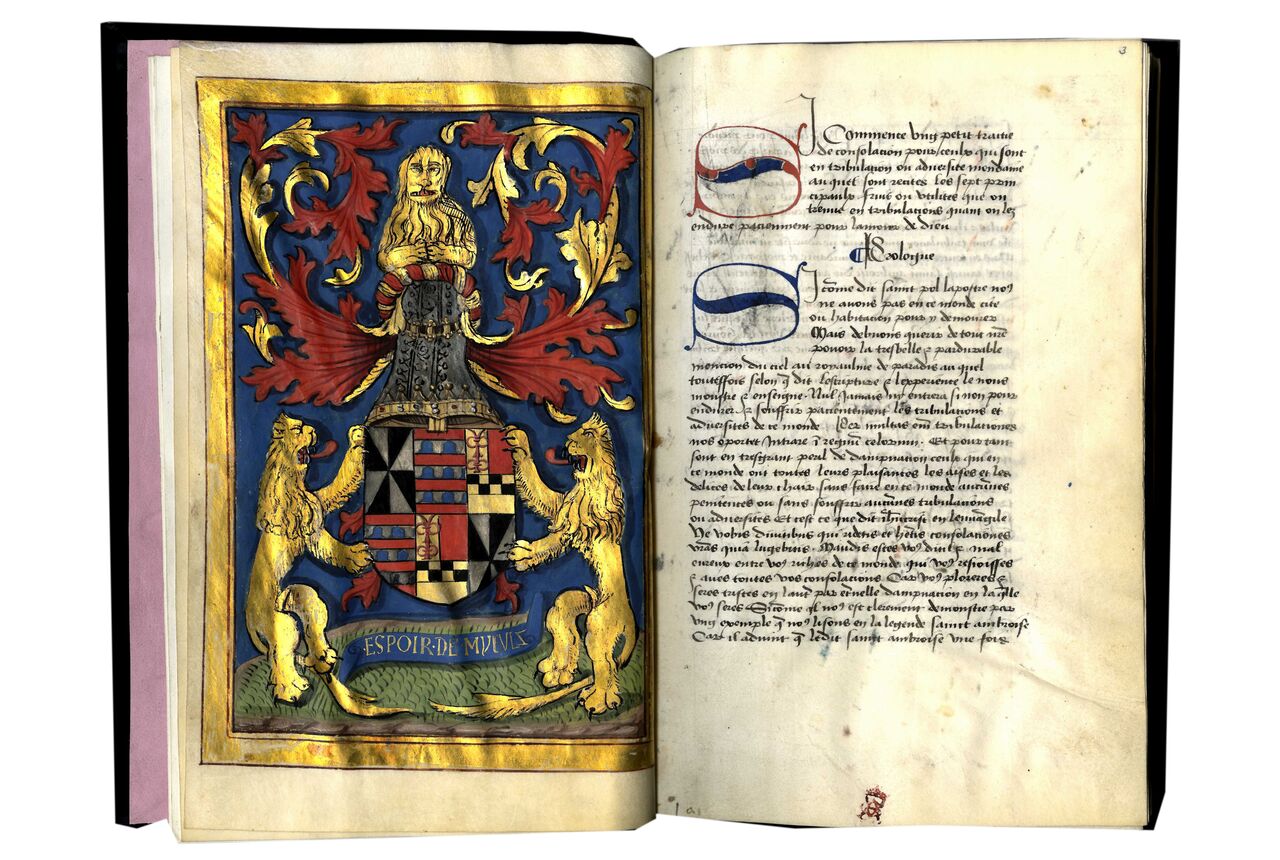 ·ESPOIR·DE·MVEVLZ
3
SJ Commence ung petit traitie
de consolacion pour ceulx qui sont
en tribulation ou adversite mondaine
au quel sont recites les sept prin
cipaulx fruis ou utilites que on
treuve en tribulations quant on les
endure paciennment pour lamour de dieu
Prologue
SJ cõme dit saint pol lapostre noꝰ
ne avons pas en ce monde cite
ou habitacion pour y demourer
Mais debvons querir de tout nr̃e
povoir la tresbelle & pardurable
mencion du ciel au royaulme de paradis au quel
touteffois selon q̃ dit lescripture & lexperience le nous
monstre & enseigne Nul jamais ny entrera si non pour
endurer & souffrir paciemment les tribulations et
adversites de ce monde Per multas em̃ tribulationes
nos oportet intrare ĩ regnũ celorum · Et pour tant
sont en tresgrant peril de dampnation ceulx qui en
ce monde ont toutes leurs plaisances les aises et les
delices de leur chair sans faire en ce monde aucunes
penitences ou sans souffrir aucunes tribulations
ou adversites Et cest ce que dit en leuvangile
Ve vobis divitibus qui ridetis et hẽtis consolationes
vr̃as quia lugebitis · Maudis estes voꝰ dit il & mal
eureux entre voꝰ riches de ce monde qui voꝰ resioisses
& aves toutes vos consolacions Car voꝰ ploreres &
seres tristes en laut̃ par et̃nelle dampnation en la q̃lle
voꝰ seres Sicome il noꝰ est clerement demonstre par
ung exemple q̃ noꝰ lisons en la legende sainct ambroise
Car il advint q̃ ledit sainct ambroise une fois